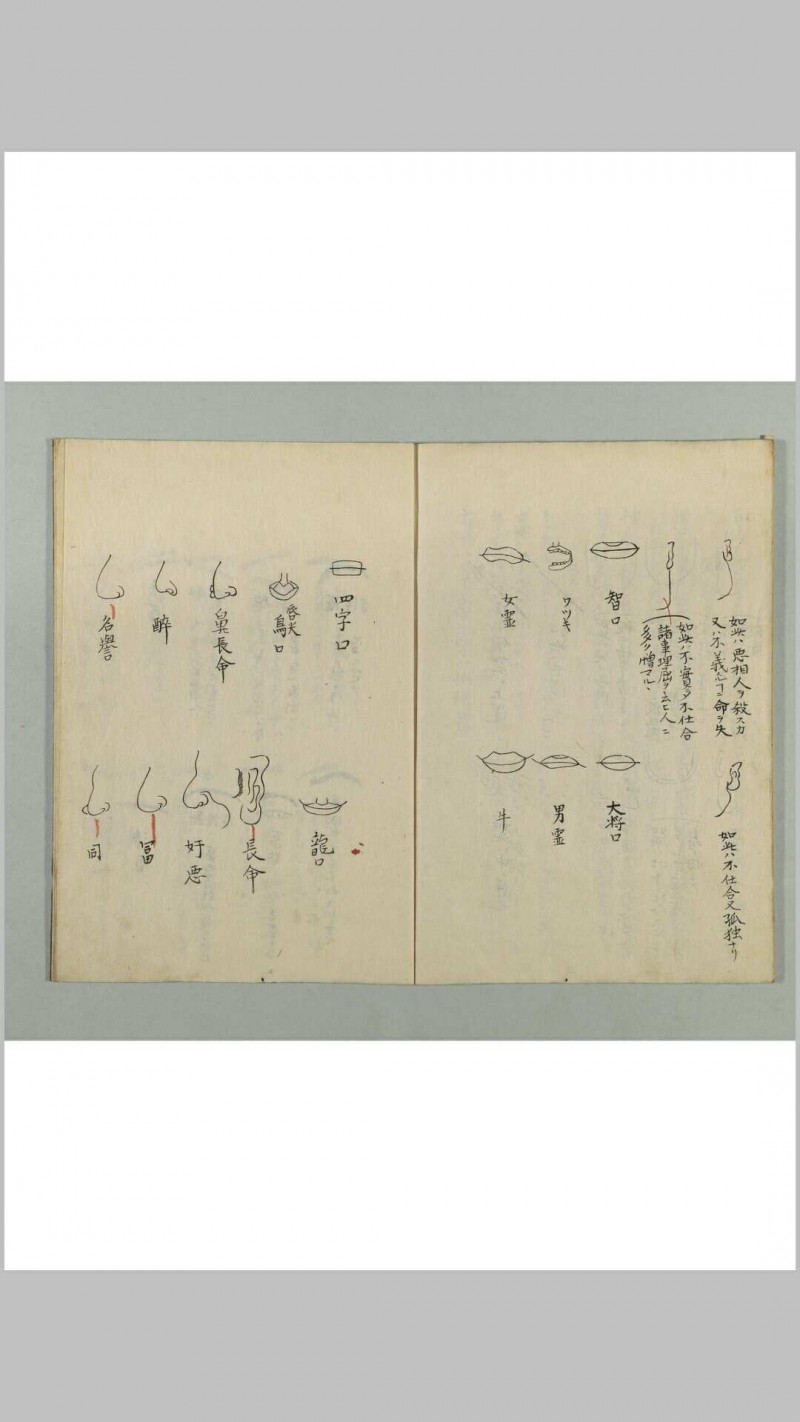 如此ハ悪相人ヲ殺スカ
又ハ不義ニ命ヲ失
如此ハ不實多不仕合
諸事理屈ヲ云ヒ人ニ
多ク憎マル
智口
ワツキ
女霊
如此ハ不仕合又孤独ナリ
大将口
男霊
牛
四字口
鳥口
鼻長命
醉
名譽
龍口
長命
好悪
冨
同